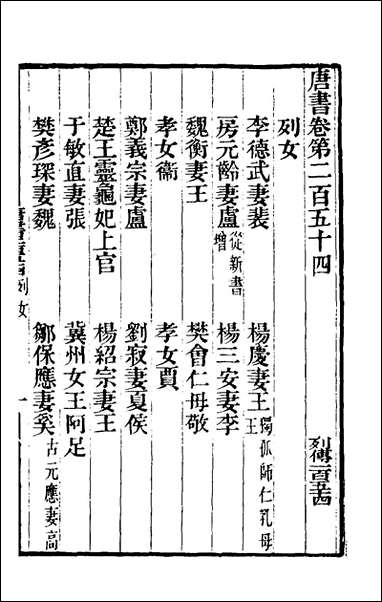 唐書卷第二百五十四　列傳二百五十四
列女
李德武妻裴　楊慶妻王 獨孤師仁乳母王
房元齡妻盧 從新書增　楊三安妻李
魏衡妻王　樊會仁母敬
孝女衞　孝女賈
鄭義宗妻盧　劉寂妻夏侯
楚王靈龜妃上官　楊紹宗妻王
于敏直妻張　冀州女王阿足
樊彥琛妻魏　鄒保應妻奚 古元應妻高
列女　一